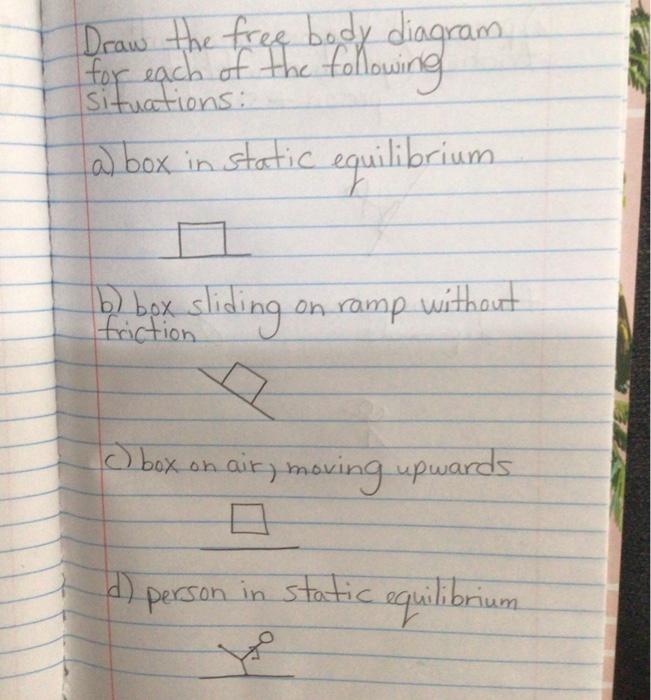 Draw the free body diagram
for each of the following
situations:
a) box in static equilibrium
b) box sliding on ramp without
friction
c) box on air, moving upwards
d) person in static equilibrium